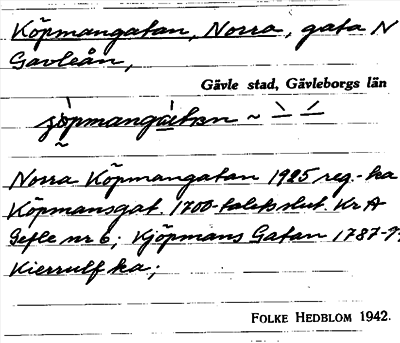 Köpmangatan, Norra, gata N
Gavleån,
Gävle stad, Gävleborgs län
Norra Köpmangatan 1925 reg.-ka
Köpmansgat. 1700-talets slut. Kr A
Gefle nr 6; Kjöpmans Gatan 1787-9?
Kierrulf ka;
FOLKE HEDBLOM 1942.